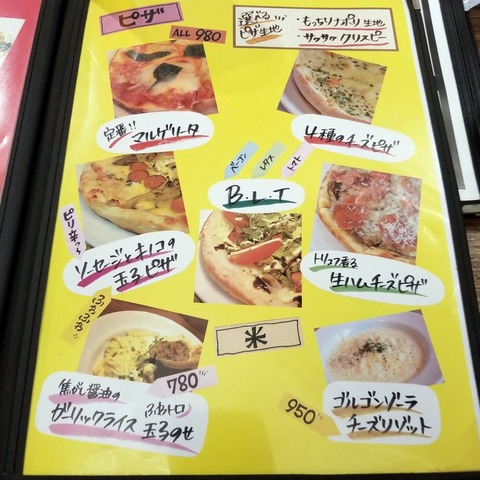 ピザ
ALL 980
選べる
ピザ生地
・もっちりナポリ生地
・サクサククリスピー
定番!!
マルゲリータ
4種のチーズピザ
ベーコン
レタス
トマト
B.L.T
ピリ辛っ
ソーセージとキノコの
玉子ピザ
トリュフ香る
生ハムチーズピザ
米
焦がし醤油の
ガーリックライス
ふわトロ
玉子のせ
780
950
ゴルゴンゾーラ
チーズリゾット